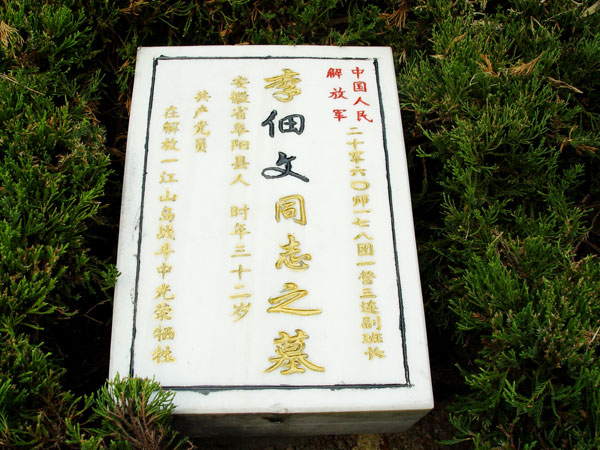 中国人民
解放军
二十军六〇师一七八团一营三连副班长
李佃文同志之墓
安徽省阜阳县人 时年三十二岁
共产党员
在解放一江山岛战斗中光荣牺牲